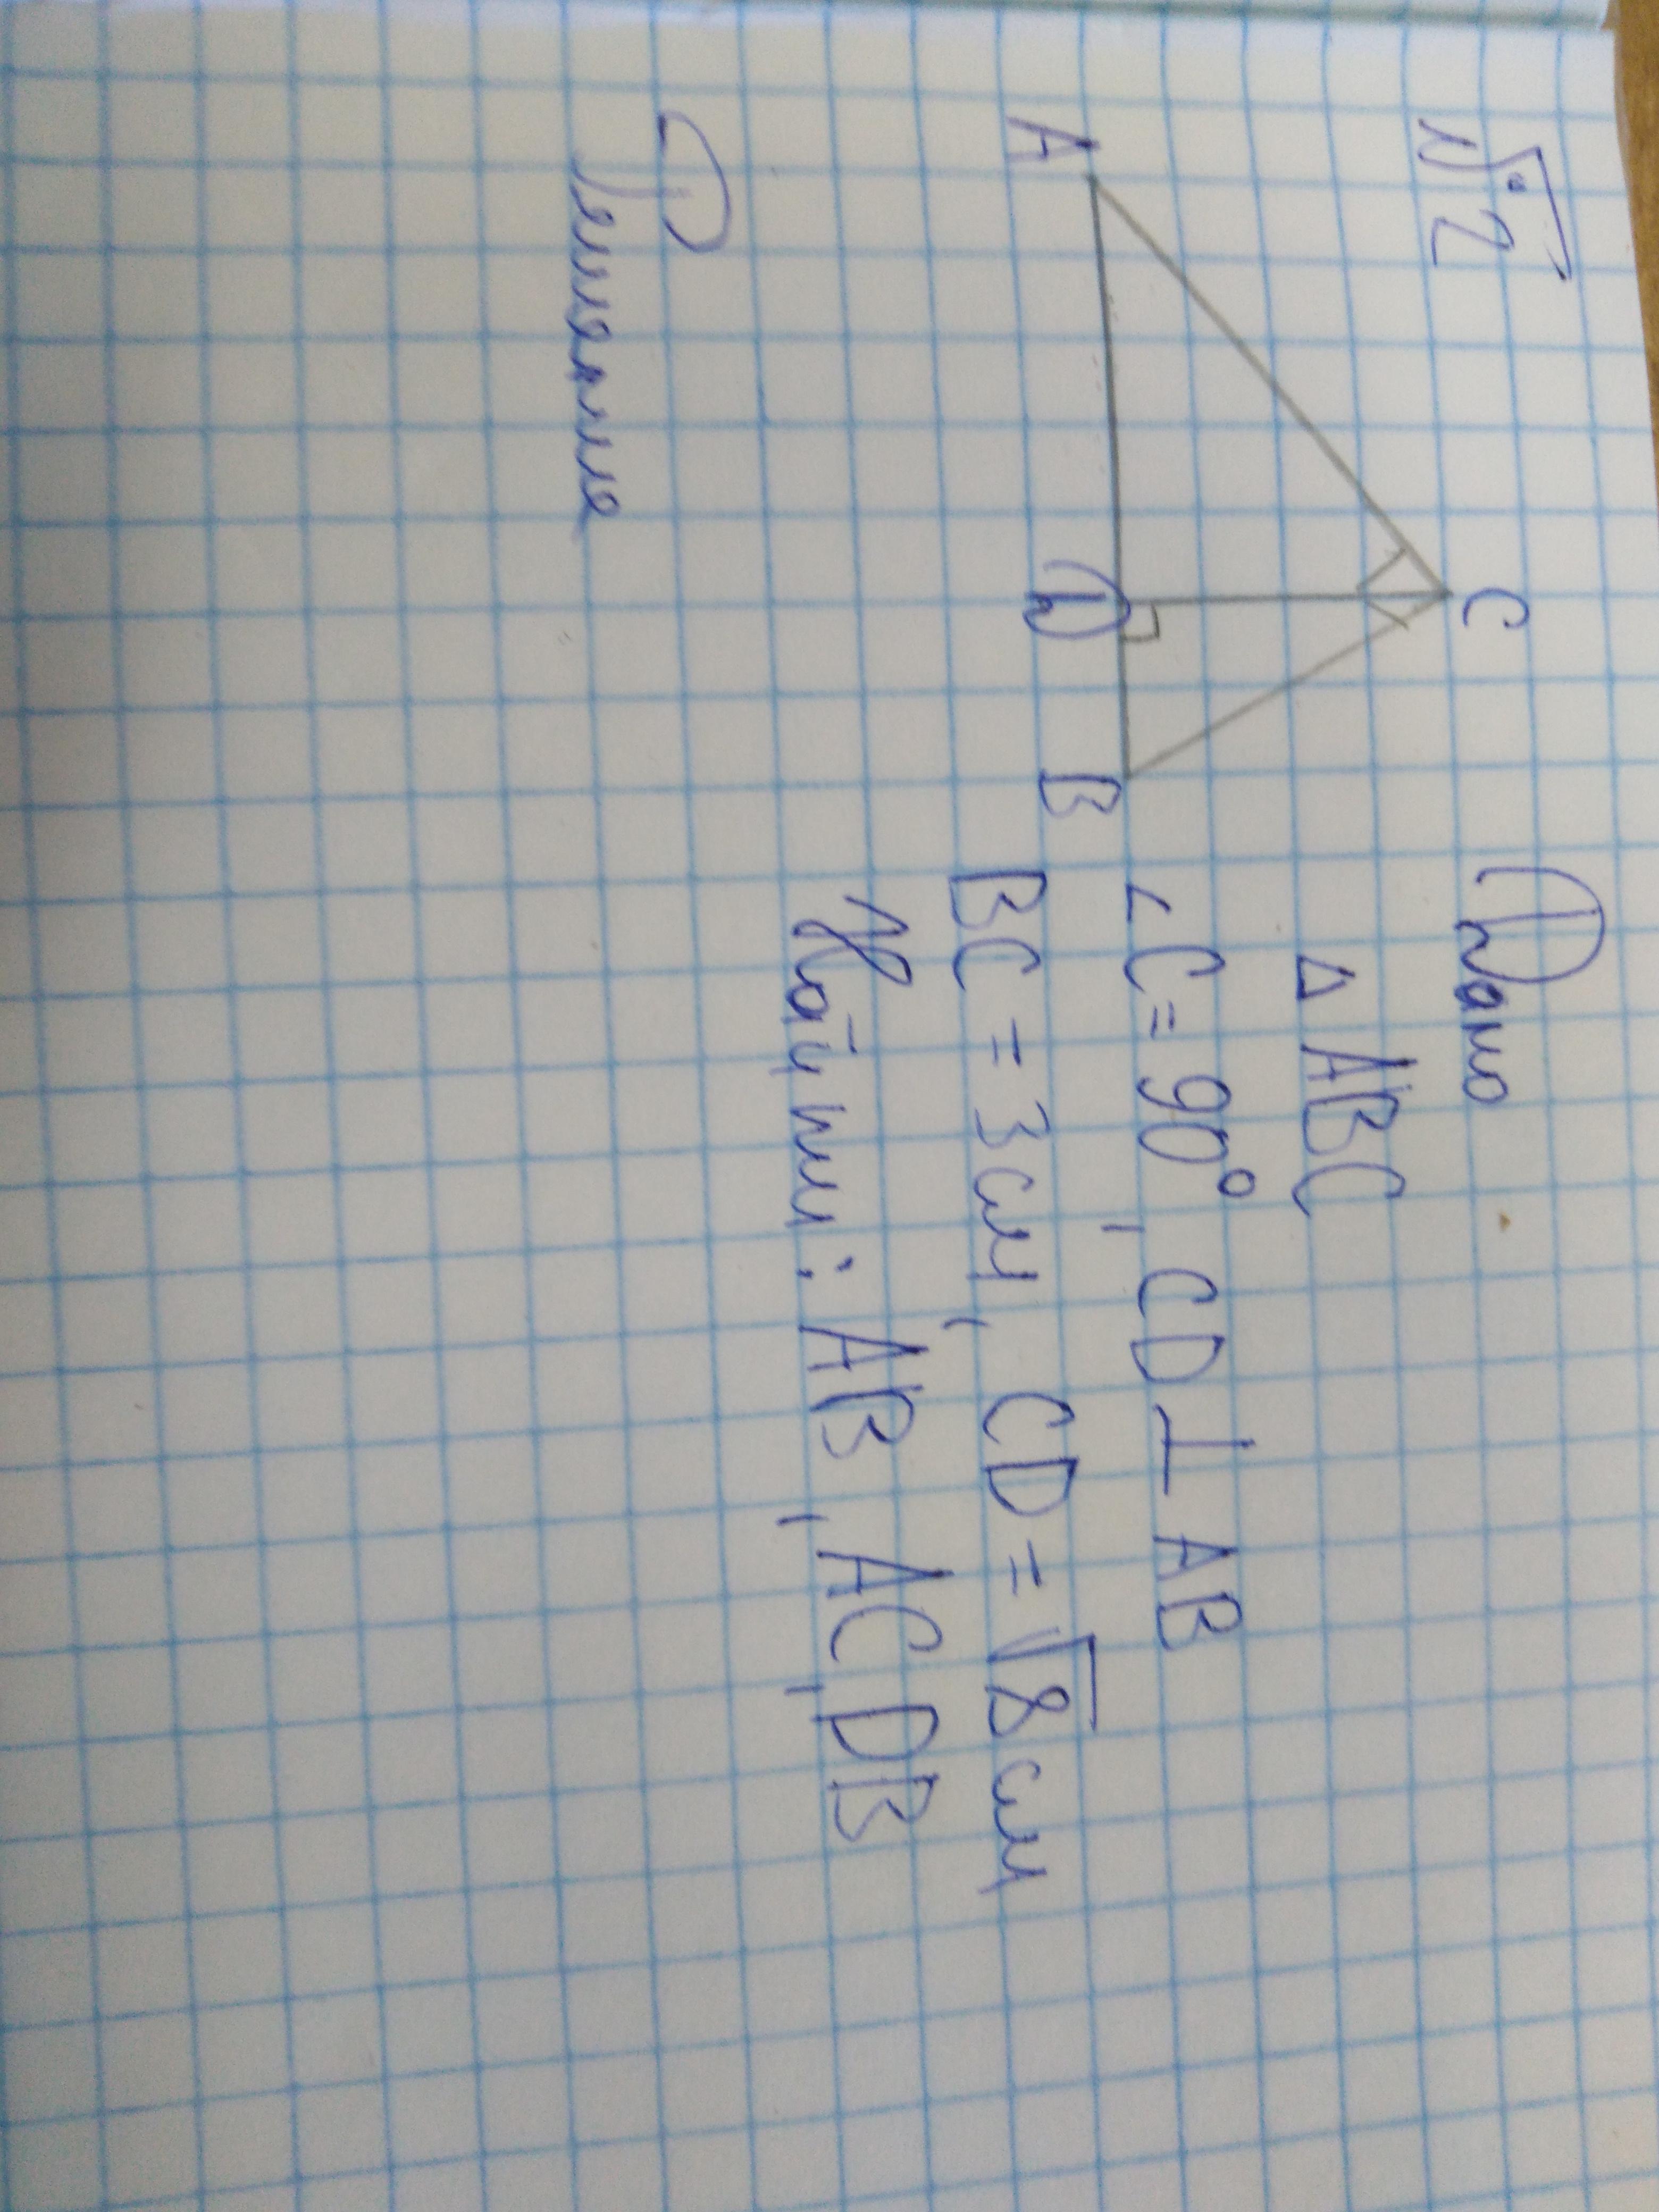 № 2
Дано
C
△ ABC
∠C = 90°, CD ⊥ AB
A D B
BC = 3 см, CD = √8 см
Найти: AB, AC, DB
Решение